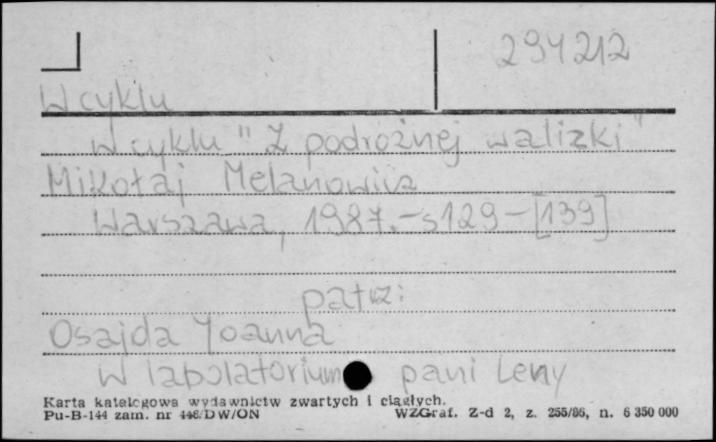 294212
W cyklu
W cyklu "Z podróżnej walizki"
Mikołaj Melanowicz
Warszawa, 1987.-s129-[139]
patrz:
Osajda Joanna
W labolatorium pani Leny
Karta katalogowa wydawnictw zwartych i ciągłych.
Pu-B-144 zam. nr 446/DW/ON WZGraf. Z-d 2, z. 255/86, n. 6 350 000